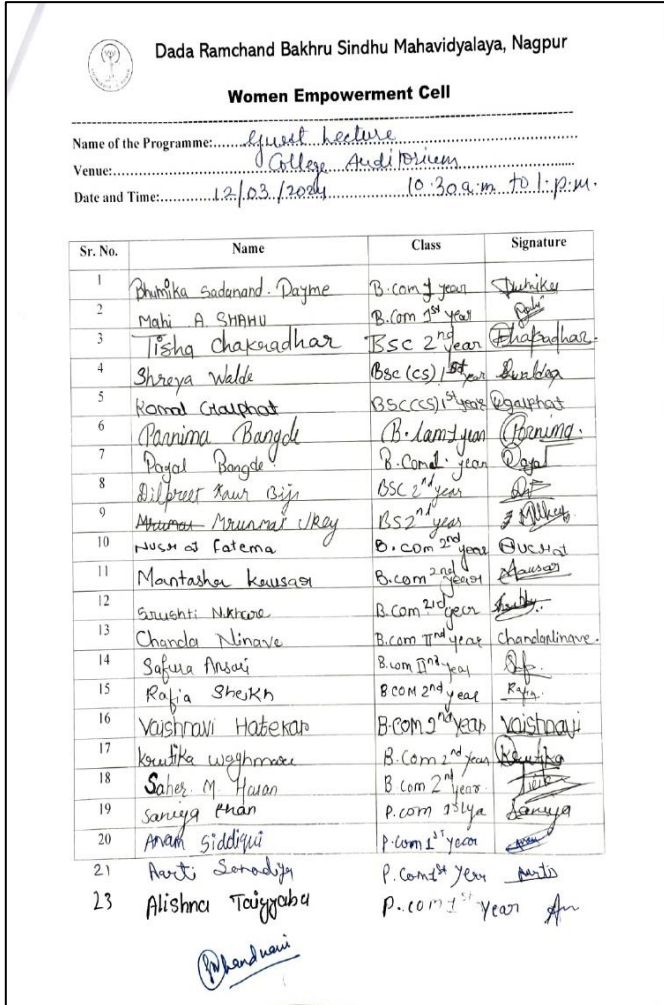 Dada Ramchand Bakhru Sindhu Mahavidyalaya, Nagpur
Women Empowerment Cell
Name of the Programme:......Guest Lecture
Venue:......College Auditorium
Date and Time:......12/03/2024 10:30a.m. to 1.p.m.
Sr. No. Name Class Signature
1 Bhumika Sadanand. Dayme B.com I year
2 Mahi A. SHAHU B.Com 1st year
3 Tisha Chakradhar BSC 2nd year
4 Shreya Walde BSC (CS) 1st year
5 Komal BSC(CS) 1st year
6 Parnima Bangde year Pornima.
7 Payal Bangde B.Com1. year Payal
8 Dilpreet Kaur BSC 2nd year
9 Mrunmai BS2nd year
10 Nusrat Fatema B.com 2nd year
11 Mantasha Kausar B.com 2nd year
12 Srushti Nikhare B.com year
13 Chanda Ninave B.com IInd year
14 Safura Ansari B.com IInd year
15 Rafia Sheikh BCOM 2nd year Rafia
16 Vaishnavi Hatekar B.COM 2nd year Vaishnavi
17 Krutika waghmare B.Com 2nd year Krutika
18 Saher M. B.com 2nd year.
19 Saniya Khan P.com Saniya
20 Anam Siddiqui P.com 1ST year
21 Aarti P.com1st
23 Alishna Taiyyaba P.com 1st year